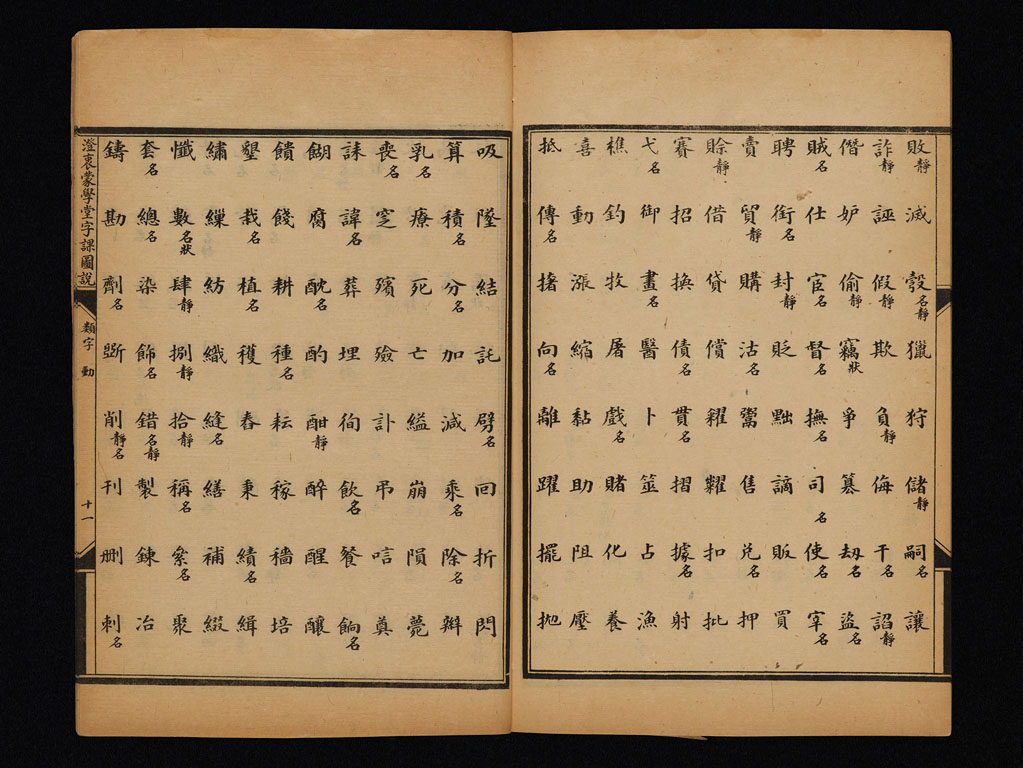 敗靜 滅 彀名靜 獵 狩 儲靜 嗣名 讓
詐靜 誣 假靜 欺 負靜 侮 干名 諂靜
僭 妒 偷靜 竊狀 爭 篡 劫名 盜名
賊名 仕 宦名 督名 撫名 司名 使名 宰名
聘 銜名 封靜 貶 黜 謫 販 買
賣 貿靜 購 沽名 鬻 售 兌名 押
賒靜 借 貸 償 糴 糶 扣 批
賽 招 換 債名 貫名 摺 據名 射
弋名 御 畫名 醫 卜 筮 占 漁
樵 釣 牧 屠 戲名 賭 化 養
喜 動 漲 縮 黏 助 阻 壓
抵 傳名 向名 離 躍 擺 拋
吸 墜 結 託 劈名 回 折 閃
算 積名 分名 加 減 乘名 除名 辦
乳名 療 死 亡 縊 崩 隕 薨
喪名 窆 殯 殮 訃 弔 唁 奠
誄 諱名 葬 埋 殉 飲名 餐 餉名
餬 腐 酖名 酌 酣靜 醉 醒 釀
饋 餞 耕 種名 耘 稼 穡 培
墾 栽名 植名 穫 舂 秉 績名 緝
繡 繅 紡 織 縫名 繕 補 綴
懺 數名狀 肆靜 捌靜 拾靜 稱名 絫名 聚
套名 總名 染 飾名 錯名靜 製 鍊 冶
鑄 勘 劑名 斲 削靜名 刊 刪 刺名
澄衷蒙學堂字課圖說 類字 動 十一